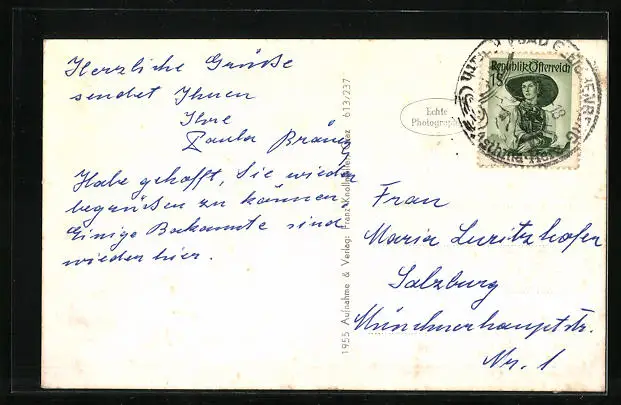 Herzliche Grüße
sendet Ihnen
Ihre
Paula Bräuer
Habe gehofft, Sie wieder
begrüßen zu können.
Einige Bekannte sind
wieder hier.
1955 Aufnahme & Verlag: Franz Knollmüller, 613/237
Echte
Photographie
Republik Österreich
1S
BAD GLEICHENBERG
Asthma
Frau
Maria Luritzhofer
Salzburg
Münchnerhauptstr.
Nr. 1